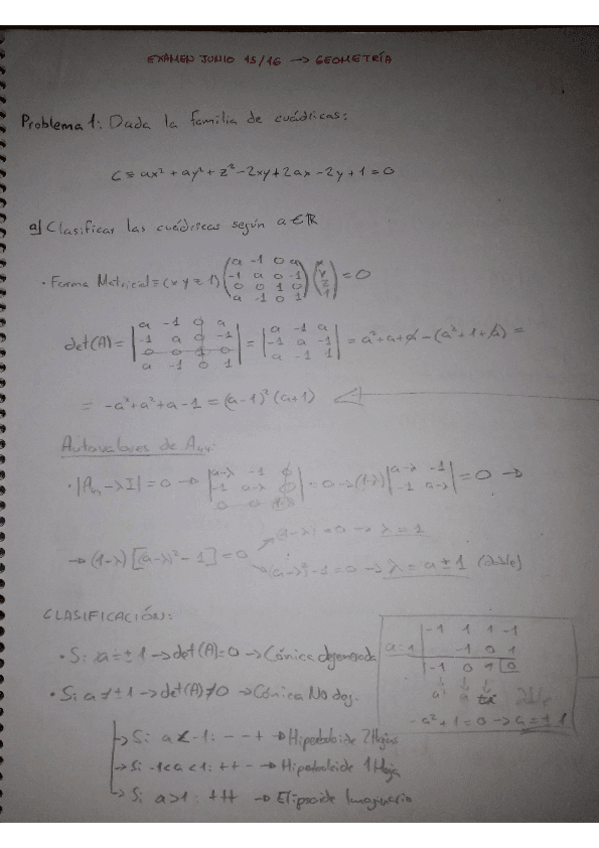 EXAMEN JUNIO 15/16 → GEOMETRÍA
Problema 1: Dada la familia de cuádricas:
C ≡ ax² + ay² + z² - 2xy + 2ax - 2y + 1 = 0
a] Clasificar las cuádricas según a ∈ ℝ
· Forma Matricial = (x y z 1) (a -1 0 a; -1 a 0 -1; 0 0 1 0; a -1 0 1) (x; y; z; 1) = 0
det(A) = |a -1 0 a; -1 a 0 -1; 0 0 1 0; a -1 0 1| = |a -1 a; -1 a -1; a -1 1| = a² + a + a - (a³ + 1 + a) =
= -a³ + a² + a - 1 = (a-1)² (a+1)
Autovalores de A₄₄:
· |A₄₄ - λI| = 0 → |a-λ -1 0; -1 a-λ 0; 0 0 1-λ| = 0 → (1-λ) |a-λ -1; -1 a-λ| = 0 →
(1-λ) = 0 → λ = 1
→ (1-λ) [(a-λ)² - 1] = 0
(a-λ)² - 1 = 0 → λ = a ± 1 (doble)
CLASIFICACIÓN:
· Si a = ± 1 → det(A) = 0 → Cónica degenerada
· Si a ≠ ± 1 → det(A) ≠ 0 → Cónica No deg.
→ Si a < -1: - - + → Hiperboloide 2 Hojas
→ Si -1 < a < 1: + + - → Hiperboloide 1 Hoja
→ Si a > 1: + + + → Elipsoide Imaginario
-1 1 1 -1
a = 1 -1 0 1
-1 0 1 0
a² a
-a² + 1 = 0 → a = ± 1